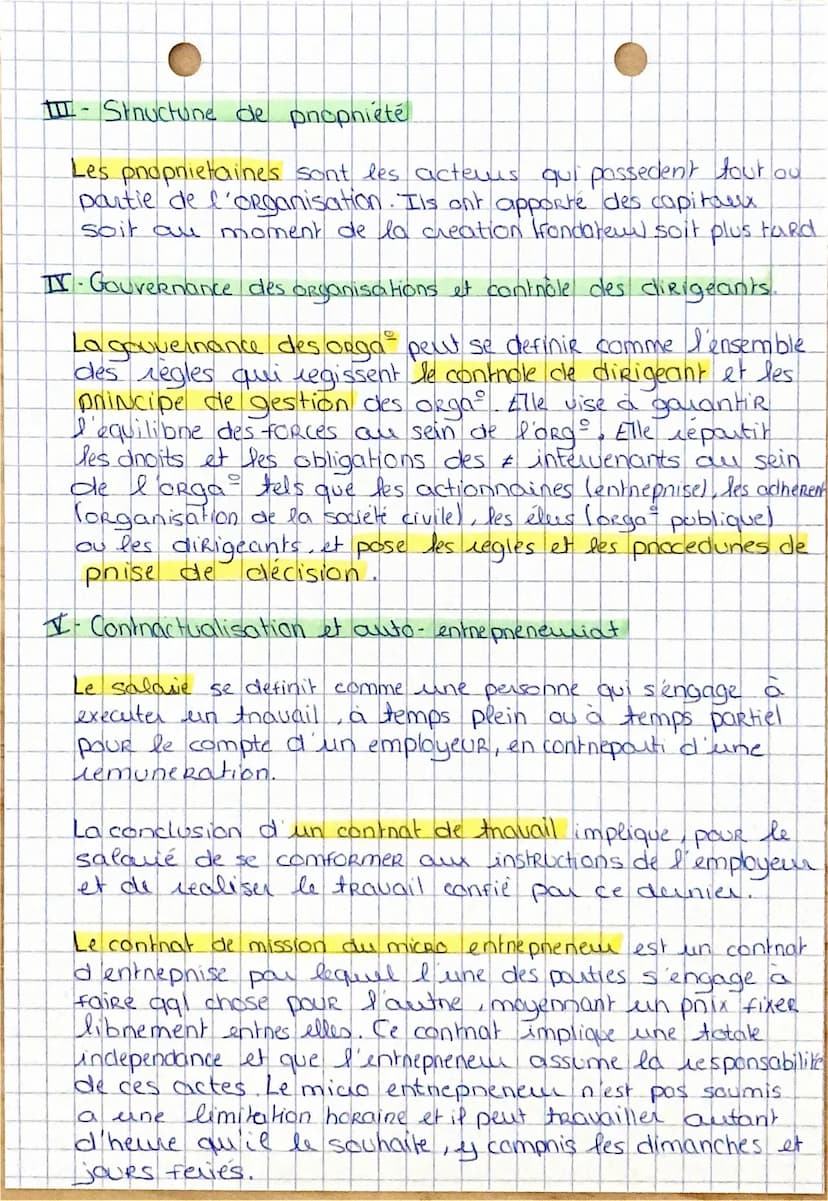 III - Structure de propriété
Les proprietaires sont les acteurs qui possedent tout ou
partie de l'organisation. Ils ont apporté des capitaux
soit au moment de la creation (fondateur) soit plus tard
IV - Gouvernance des organisations et contrôle des dirigeants.
La gouvernance des orga° peut se definir comme l'ensemble
des règles qui regissent le controle de dirigeant et les
principe de gestion des orga°. Elle vise à garantir
l'equilibre des forces au sein de l'org°. Elle répartit
les droits et les obligations des ≠ intervenants au sein
de l'orga° tels que les actionnaires (entreprise), les adherent
(organisation de la société civile), les élus (orga° publique)
ou les dirigeants, et pose les regles et les procedures de
prise de décision.
V - Contractualisation et auto-entrepreneuriat
Le salarie se definit comme une personne qui s'engage à
executer un travail, à temps plein ou à temps partiel
pour le compte d'un employeur, en contreparti d'une
remuneration.
La conclusion d'un contrat de travail implique, pour le
salarié de se comformer aux instructions de l'employeur
et de realiser le travail confié par ce dernier.
Le contrat de mission du micro entrepreneur est un contrat
d'entreprise par lequel l'une des parties s'engage à
faire qql chose pour l'autre, moyennant un prix fixer
librement entres elles. Ce contrat implique une totale
independance et que l'entrepreneur assume la responsabilité
de ces actes. Le micro entrepreneur n'est pas soumis
a une limitation horaire et il peut travailler autant
d'heure qu'il le souhaite, y compris les dimanches et
jours feriés.